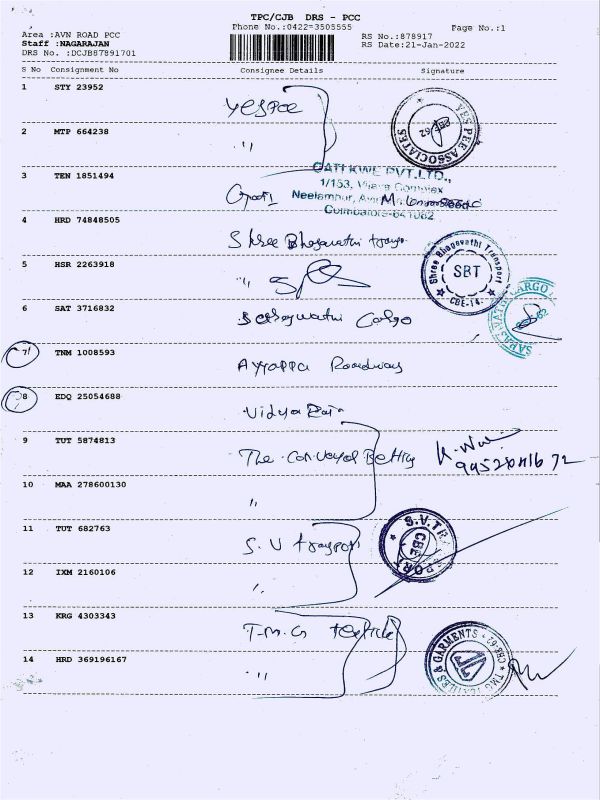 TPC/CJB DRS - PCC
Phone No.:0422-3505555
Page No.:1
Area :AVN ROAD PCC
RS No.:878917
Staff :NAGARAJAN
RS Date:21-Jan-2022
DRS No. :DCJB87891701
S No Consignment No Consignee Details Signature
1 STY 23952 YESPEE
YES PEE ASSOCIATES
CBE-62
2 MTP 664238 "
3 TEN 1851494 Gati
GATI KWE PVT.LTD.,
1/153, Vijaya Complex
Neelambur,
Coimbatore-641062
4 HRD 74848505 Shree Bhagavathi
Shree Bhagavathi Transport
SBT
CBE-14.
5 HSR 2263918 "
6 SAT 3716832 Cargo
CARGO
7 TNM 1008593 Ayyappa Roadways
8 EDQ 25054688 Vidya
9 TUT 5874813 The Conveyor Belting
10 MAA 278600130 "
11 TUT 682763 S.V Transport
S.V.TR
CBE
12 IXM 2160106 "
13 KRG 4303343 T.M.G Textile
& GARMENTS
CBE-62
14 HRD 369196167 "